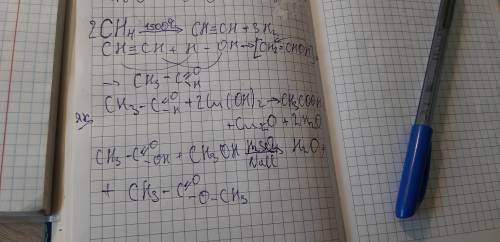 2CH₄ 1500°C→ CH≡CH + 3H₂
CH≡CH + H–OH → [CH₂=CHOH]
→ CH₃–C=O –H
CH₃–C=O –H + 2Cu(OH)₂ → CH₃COOH
+ Cu₂O + 2H₂O
CH₃–C=O –OH + CH₃OH H₂SO₄ H₂O +
+ CH₃–C=O –O–CH₃